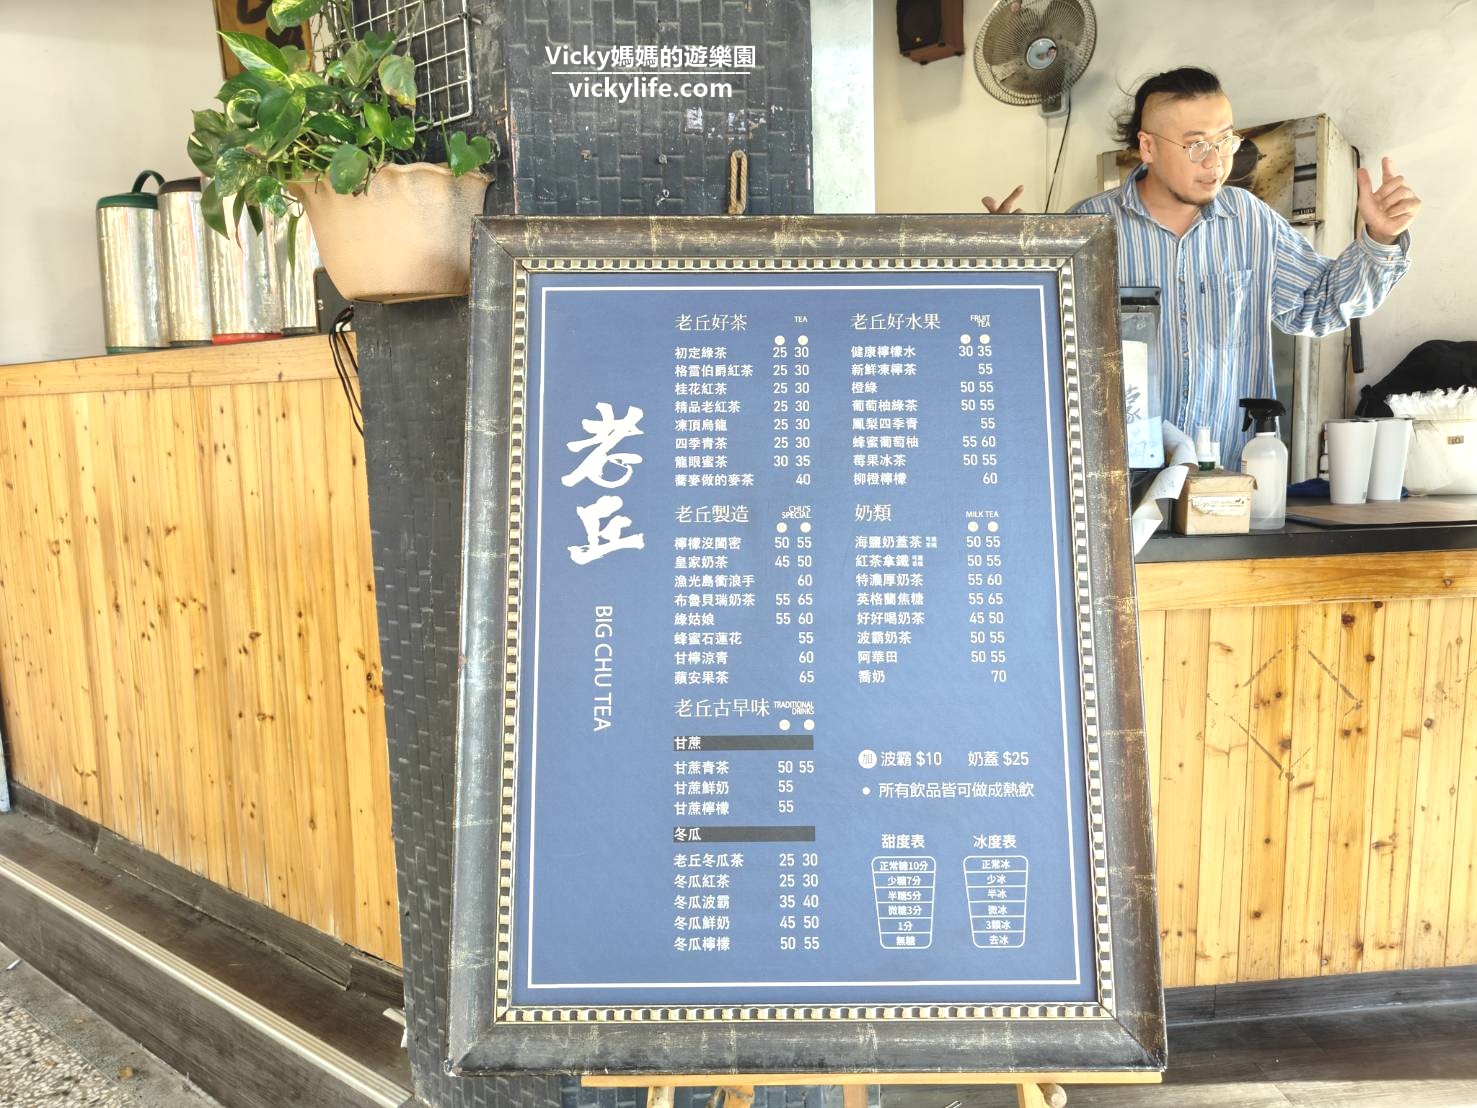 Vicky媽媽的遊樂園
vickylife.com
老丘
BIG CHU TEA
老丘好茶 TEA
初定綠茶 25 30
格雷伯爵紅茶 25 30
桂花紅茶 25 30
精品老紅茶 25 30
凍頂烏龍 25 30
四季青茶 25 30
龍眼蜜茶 30 35
蕎麥做的麥茶 40
老丘製造 CHU'S SPECIAL
檸檬沒閨密 50 55
皇家奶茶 45 50
漁光島衝浪手 60
布魯貝瑞奶茶 55 65
綠姑娘 55 60
蜂蜜石蓮花 55
甘檸涼青 60
蘋安果茶 65
老丘古早味 TRADITIONAL DRINKS
甘蔗
甘蔗青茶 50 55
甘蔗鮮奶 55
甘蔗檸檬 55
冬瓜
老丘冬瓜茶 25 30
冬瓜紅茶 25 30
冬瓜波霸 35 40
冬瓜鮮奶 45 50
冬瓜檸檬 50 55
老丘好水果 FRUIT TEA
健康檸檬水 30 35
新鮮凍檸茶 55
橙綠 50 55
葡萄柚綠茶 50 55
鳳梨四季青 55
蜂蜜葡萄柚 55 60
莓果冰茶 50 55
柳橙檸檬 60
奶類 MILK TEA
海鹽奶蓋茶 50 55
紅茶拿鐵 50 55
特濃厚奶茶 55 60
英格蘭焦糖 55 65
好好喝奶茶 45 50
波霸奶茶 50 55
阿華田 50 55
喬奶 70
加 波霸 $10 奶蓋 $25
• 所有飲品皆可做成熱飲
甜度表
正常糖10分
少糖7分
半糖5分
微糖3分
1分
無糖
冰度表
正常冰
少冰
半冰
微冰
3顆冰
去冰